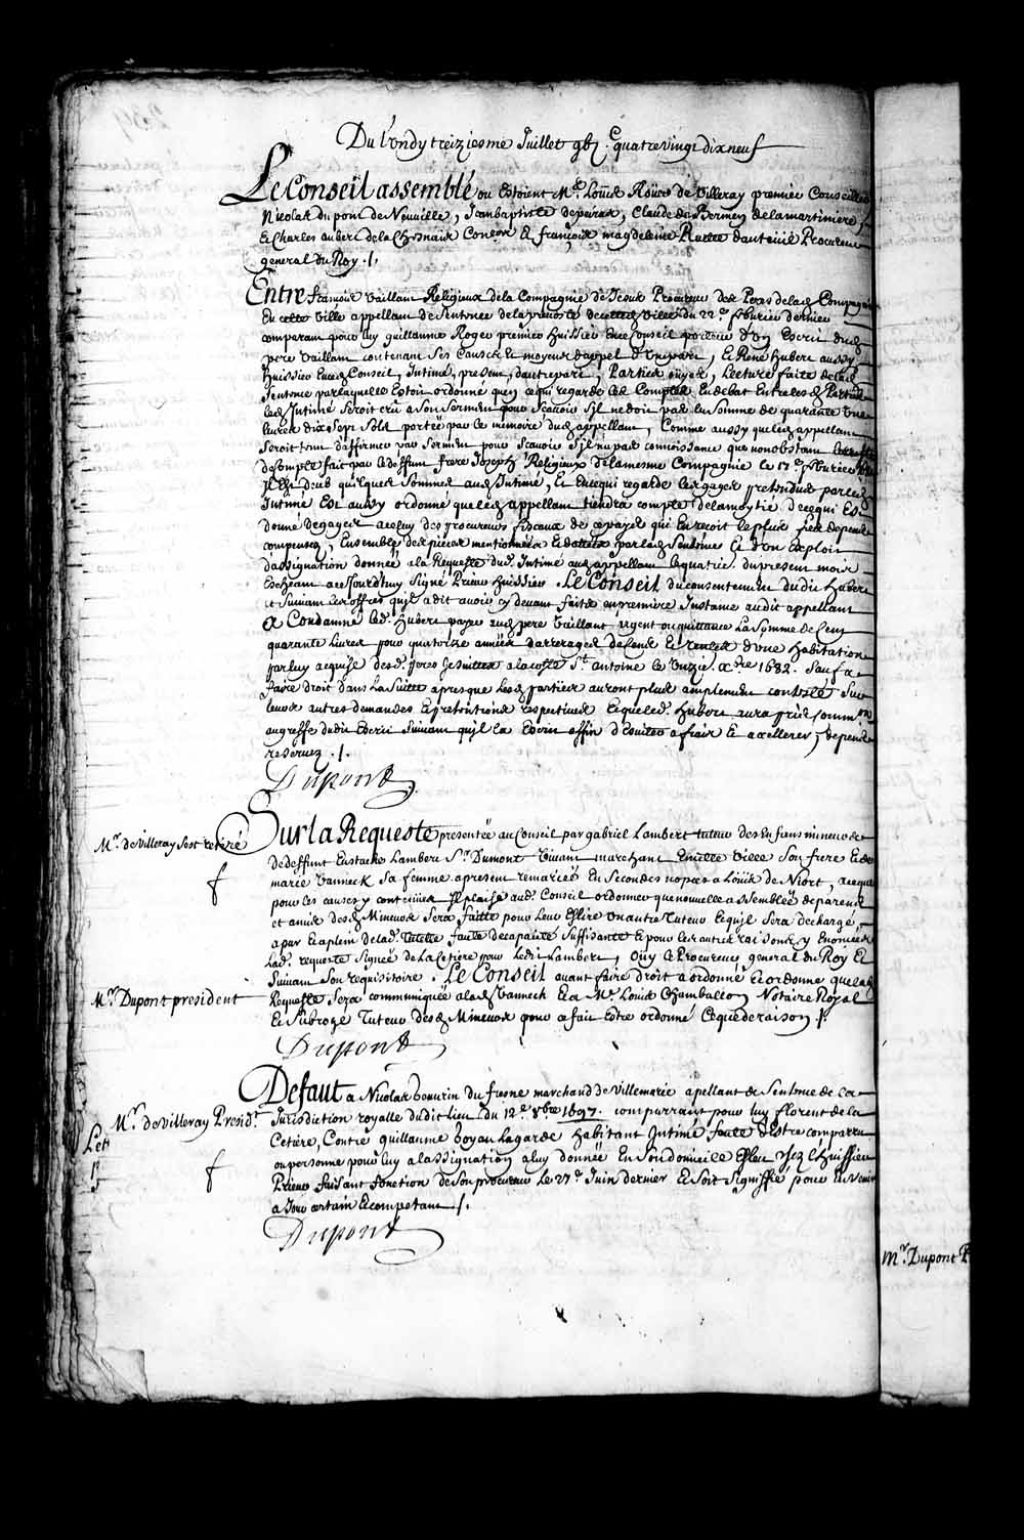 Du Lundy treiziesme Juillet gbjC quatrevingt dixneuf
Le Conseil assemblé ou Estoient Mes Louis Roüer de Villeray premier Conseiller
Nicolas dupont de Neuville, Jean baptiste depeiras, Claude de Bermen delamartiniere,
Et Charles aubert dela Chesnaie Coners Et françois magdeleine Ruette dauteüil Procureur
general du Roy ./.
Entre francois Vaillant Religieux dela Compagnie de Jesus Procureur des Peres delad Compagnie
En cette Ville appellant de Sentence dela prevosté de cetted Ville du 22e febvrier dernier
comparant pour luy guillaume Roger premier huissier En ce Conseil porteur d'un Escrit dud
pere Vaillant contenant Ses Causes Et moyens d'appel d'Une part, Et René hubert aussy
huissier Encd Conseil, Intimé, present, dautre part, Parties ouyes, Lecture faite de lad
Sentence par laquelle Estoit ordonné qu'en ce qui regarde les Comptes En debat Entre lesd Parties
led Intimé Seroit crû a Son Serment pour Scavoir S'jl ne doit pas la Somme de quarante Une
livres dix Sept Sols portée par le memoire dud appellant, Comme aussy que led appellant
Seroit tenu d'affirmer par Serment pour Scavoir S'jl n'a pas connoissance que nonobstant
de Compte fait par le deffunt frere Joseph Religieux de lamesme Compagnie le 17e febvrier
Jl Est deub quelques Sommes aud Intimé, Et En ce qui regarde les gages pretendus par led
Intimé Est aussy ordonné que led appellant tiendra compte de la moytié de ce qui Est
donné de gages a celuy des procureurs fiscaux de ce pays qui En reçoit le plus, depens
compensez, Ensemble des pieces mentionnées Et dattées par lad Sentence Et d'un Exploit
dassignation donnée a la Requeste dud. Intimé aud appellant le quatre du present mois
Escheant a cejourd'huy Signé Prieur huissier. Le Conseil du consentement dudit hubert
et Suivant Les offres qu'jl a dit avoir cy devant faites en premiere Instance audit appellant
A Condamné led. hubert payer aud pere Vaillant argent ou quittance La Somme de Cent
quarante livres pour quatorze années d'arrerages de Cens Et rentes d'une habitation
par luy acquise desd. peres Jesuites a la coste St. antoine le Unze xbre 1682. Sauf a
faire droit dans La Suitte apres que Lesd parties auront plus amplement contesté Sur
leurs autres demandes Et pretentions respectives Et que led. hubert aura pris Communon
au greffe dudit Escrit Suivant qu'jl la Escrit affin d'Eviter a frais Et accellerer, depens
reservez ./.
Dupont
Mr. de Villeray Sest retiré
Sur la Requeste presentée au Conseil par gabriel Lambert tuteur des Enfans mineurs de
de deffunt Eustache Lambert Sr. Dumont Vivant marchant En cette Ville Son frere Et de
marie Vanneck Sa femme apresent remariée En Secondes nopces a Loüis de Niort, a ce que
pour les causes y contenües Jl plaise aud. Conseil ordonner que nouvelle assemblée de parens
et amis desd Mineurs Sera faitte pour leur Eslire Un autre Tuteur Et qu'jl Sera dechargé,
a pur Et a plein de lad. Tutelle faute de capacité Suffisante Et pour les autres raisons y Enoncées
Lad. requeste Signée de La Cetiere pour ledit Lambert, Oüy Le Procureur general du Roy Et
Suivant Son requisitoire. Le Conseil avant faire droit a ordonné Et ordonne que lad
Requeste Sera communiquée a lad Vanneck Et a Me Louis Chamballon Notaire Royal
Et Subrogé Tuteur desd Mineurs pour ce fait Estre ordonné Ce que de raison ./.
Mr. Dupont president
Dupont
Defaut a Nicolas bourin du fresne marchand de Villemarie apellant de Sentence de La
Mr. de Villeray Presidt.
Jurisdiction royalle dudit lieu du 12e 8bre 1697. comparrant pour luy florent de la
Cetiere, Contre guillaume boyau lagarde habitant Intimé faute d'Estre comparru
ou personne pour luy a lassignation a luy donnée En Son domicille Esleu chez l'huissier
Prieur faisant fonction de Son procureur le 27e Juin dernier Et Soit Signiffié pour En Venir
a Jour certain Et competant ./.
Dupont
Mr. Dupont P